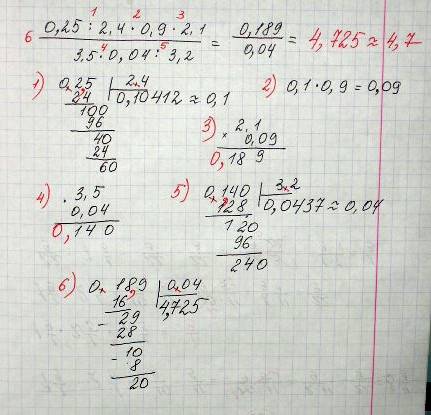 1 2 3
6 0,25 : 2,4 · 0,9 · 2,1 / 3,5 · 0,04 : 3,2 = 0,189 / 0,04 = 4,725 ≈ 4,7
4 5
1) 0,25 | 2,4
24 0,10412 ≈ 0,1
100
96
40
24
60
2) 0,1 · 0,9 = 0,09
3) × 2,1
0,09
0,18 9
4) · 3,5
0,04
0,140
5) 0,140 | 3,2
128 0,0437 ≈ 0,04
120
96
240
6) 0,189 | 0,04
16 4,725
- 29
28
- 10
8
20